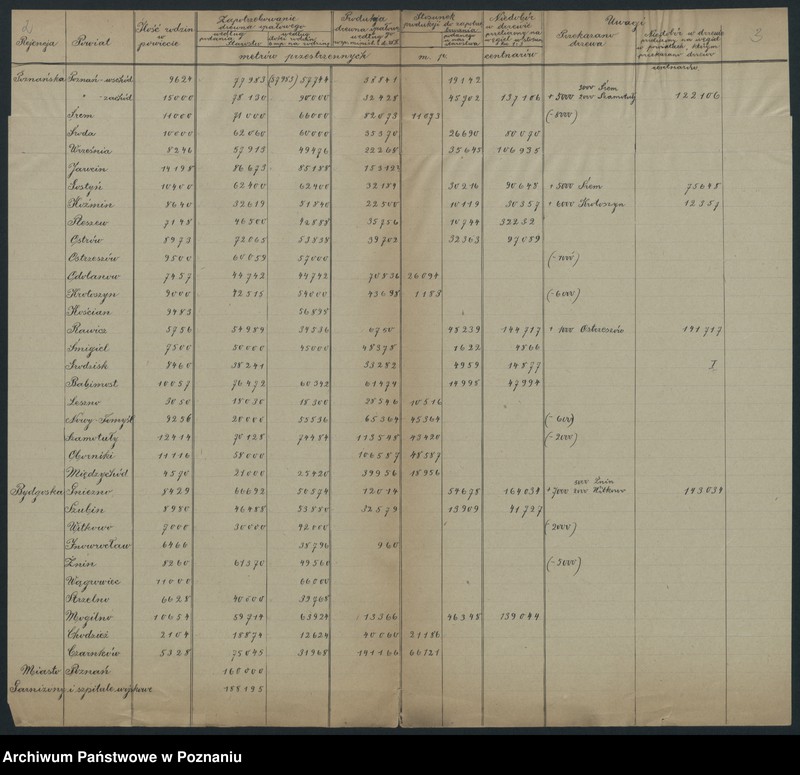 2
3
Rejencja Powiat Ilość rodzin w powiecie Zapotrzebowanie drzewa opałowego Produkcja drzewa opałowego Stosunek produkcji do zapotrzebowania Niedobór w drzewie Uwagi
Przekazano drzewa
metrów przestrzennych m. p. centnarów
centnarów
Poznańska Poznań-wschód 9624 77983 (87983) 57744 38841 19142
2000 Śrem
" -zachód 15000 78130 90000 32428 45702 137106 +5000 Szamotuły 122106
Śrem 11000 71000 66000 82073 11073 (-8000)
Środa 10000 62060 60000 35370 26690 80070
Września 8246 57913 49476 22268 35645 106935
Jarocin 14198 86673 85188
Gostyń 10400 62400 62400 32184 30216 90648 +5000 Śrem 75648
Koźmin 8640 32619 51840 22500 10119 30357 +6000 Krotoszyn 12357
Pleszew 7148 46500 42888 35756 10744 32232
Ostrów 8973 72065 53838 39702 32363 97089
Ostrzeszów 9500 60059 57000
Odolanów 7457 44742 44742 70836 26094
Krotoszyn 9000 42515 54000 43698 1183 (-6000)
Kościan 9483 56898
Rawicz 5756 54989 34536 6750 48239 144717 +1000 Ostrzeszów 141717
Śmigiel 7500 50000 45000 48378 1622 4866
Grodzisk 8460 38241 33282 4959 14877
Babimost 10057 76472 60342 61474 14998 47994
Leszno 3050 18030 18300 28546 10516
Nowy-Tomyśl 9256 20000 55536 65364 45364 (-600)
Szamotuły 12414 70128 74484 113548 43420 (-2000)
Oborniki 11116 58000 106587 48587
Międzychód 4570 21000 25420 39956 18956
1000 Żnin
Bydgoska Gniezno 8429 66692 50574 12014 54678 164034 +7000 2000 Witkowo 143034
Szubin 8980 46488 53880 32579 13909 41727
Witkowo 7000 30000 42000 (-2000)
Inowrocław 6466 38796 960
Żnin 8260 61370 49560 (-5000)
Wągrowiec 11000 66000
Strzelno 6628 40000 39768
Mogilno 10654 59714 63924 13366 46348 139044
Chodzież 2104 18874 12624 40060 21186
Czarnków 5328 75045 31968 141166 66121
Miasto Poznań 160000
Garnizony i szpitale wojskowe 188195
Archiwum Państwowe w Poznaniu